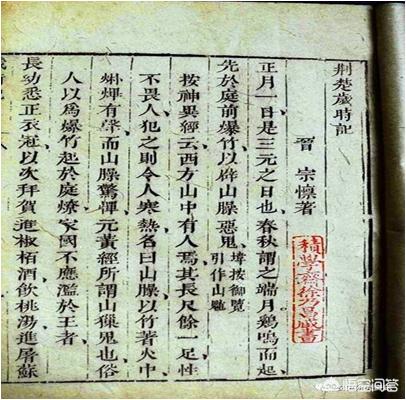 荆楚歲時記
晉 宗懍著
正月一日是三元之日也春秋謂之端月鷄鳴而起
先於庭前爆竹以辟山臊惡鬼
埻按御覽
引作山魈
按神異經云西方山中有人焉其長尺餘一足性
不畏人犯之則令人寒熱名曰山臊以竹著火中
烞熚有聲而山臊驚憚元黃經所謂山鬼也俗
人以為爆竹起於庭燎家國不應濫於王者
長幼悉正衣冠以次拜賀進椒栢酒飲桃湯進屠蘇
積學齋徐乃昌藏書
悟空问答